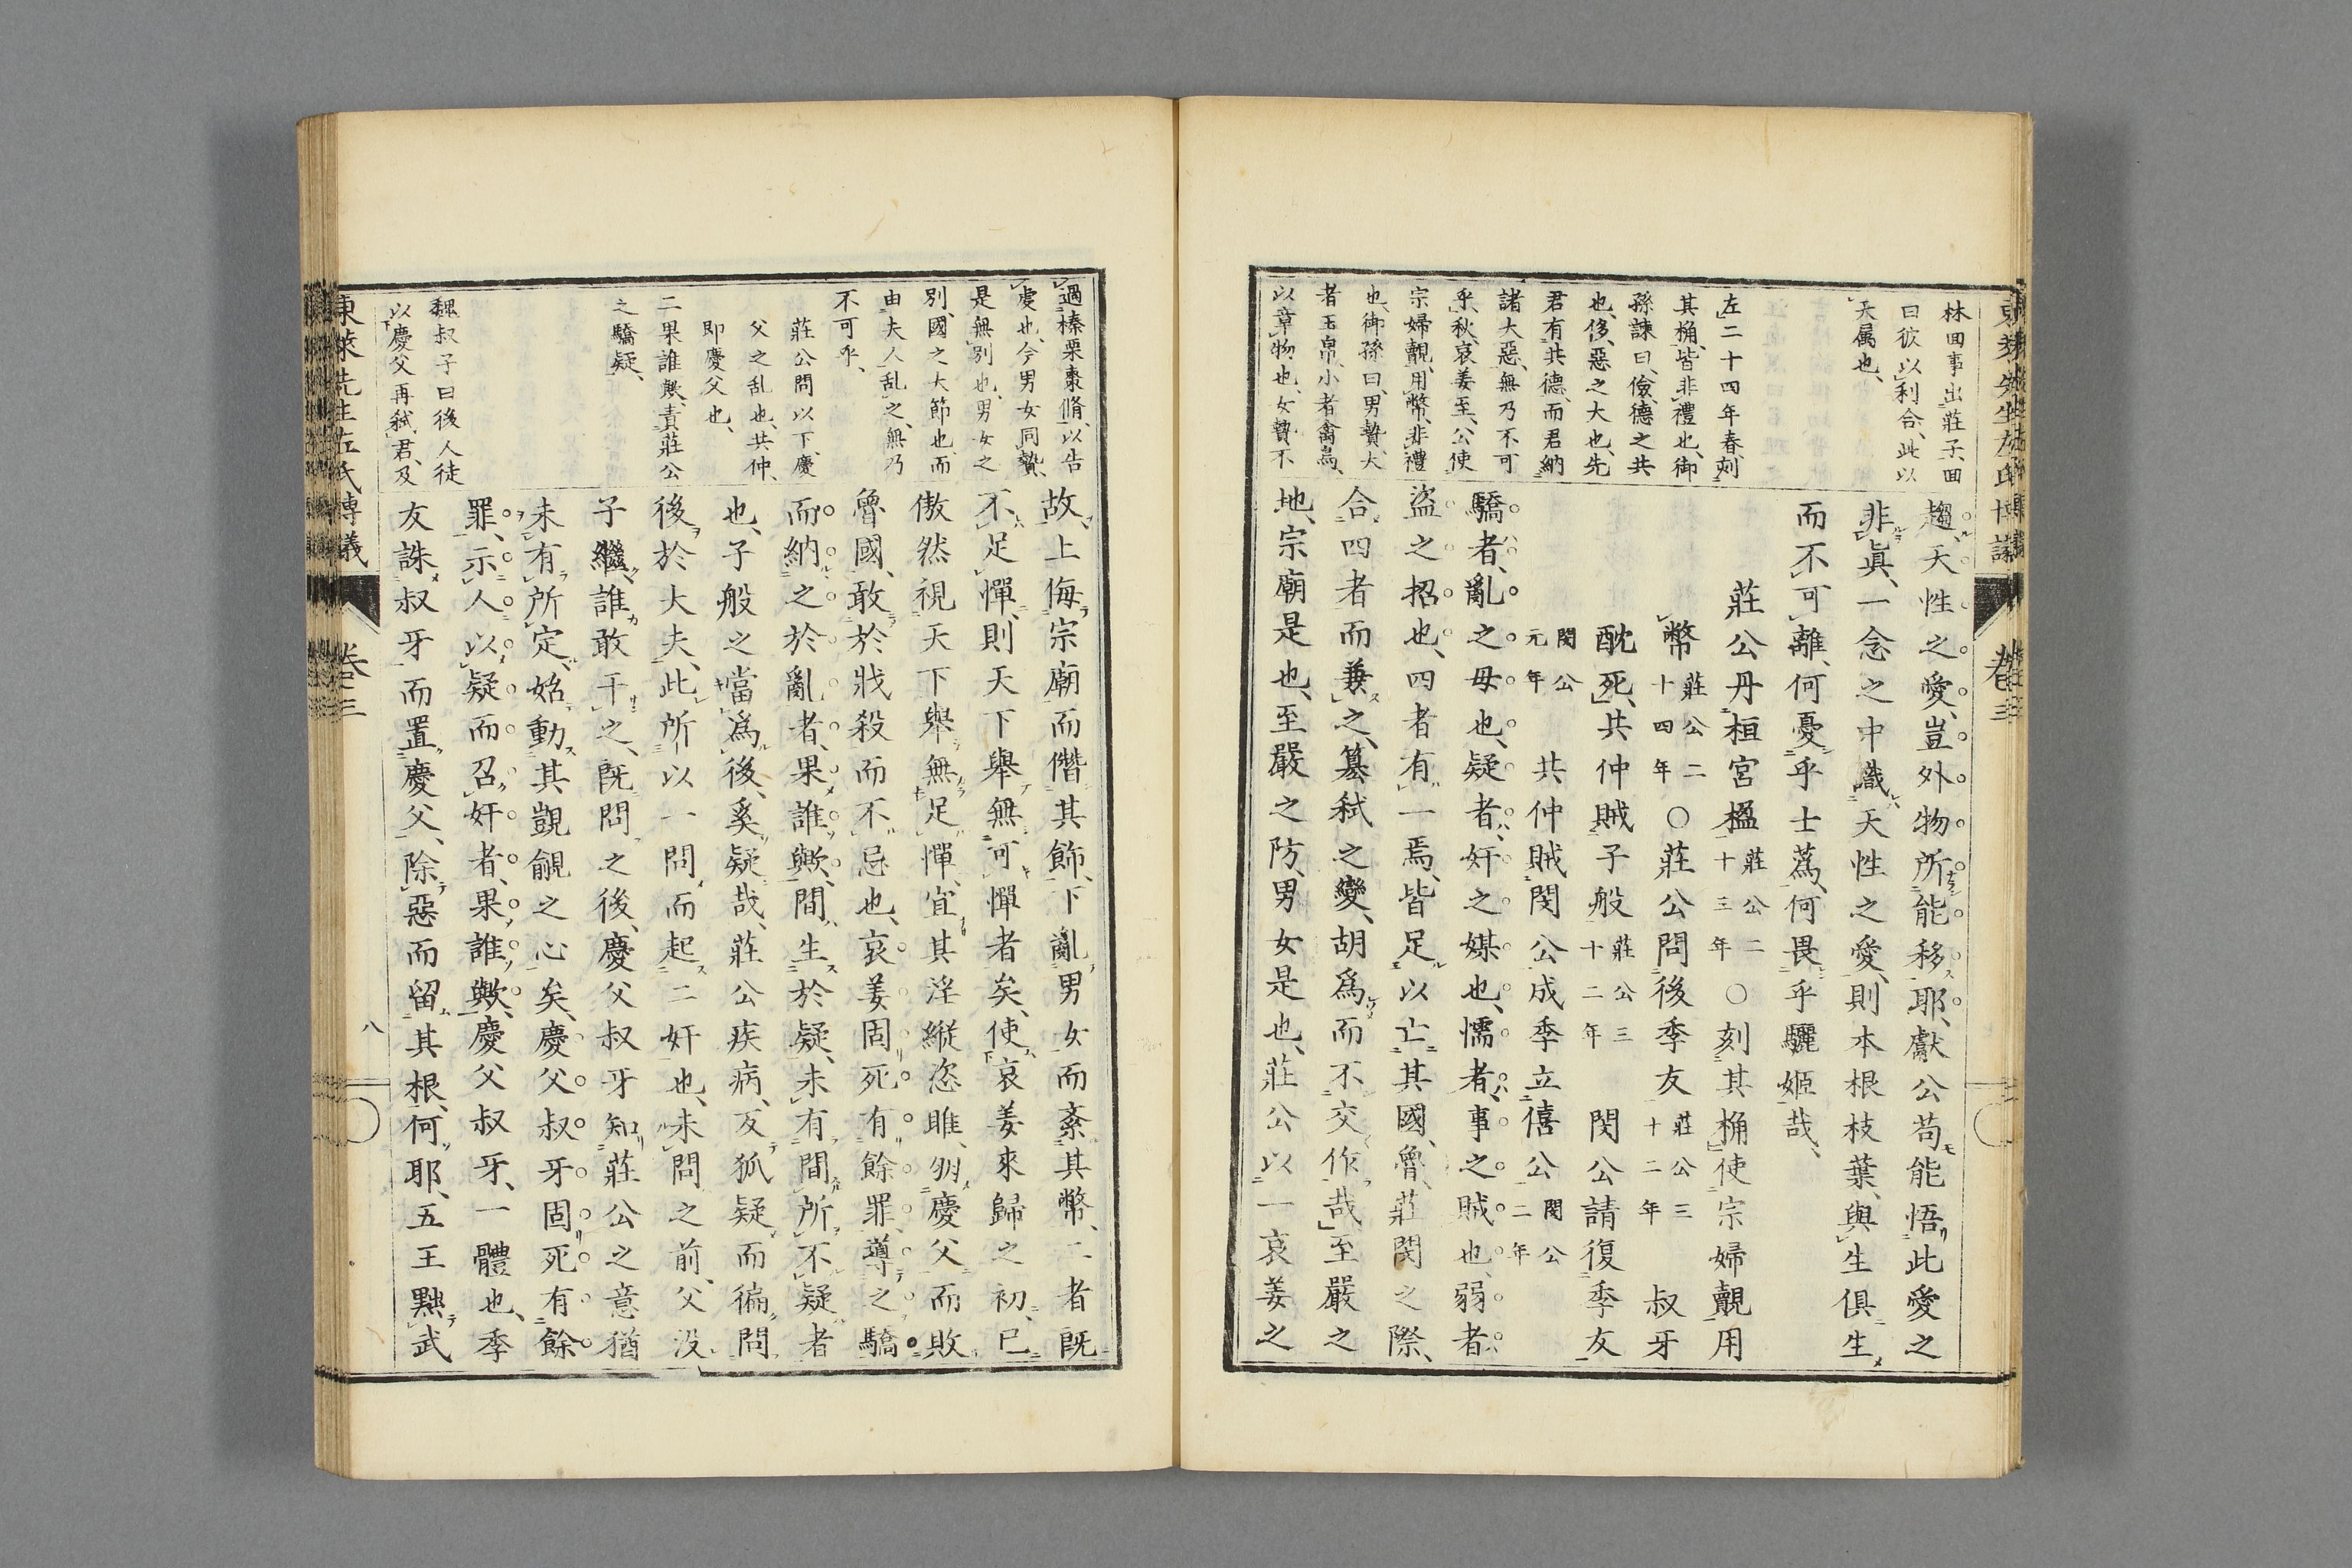 東萊先生左氏博議
卷三
林回事出莊子、回
曰彼以利合、此以
天属也、
左二十四年春、刻
其桷、皆非禮也、御
孫諫曰、儉、德之共
也、侈、惡之大也、先
君有共德、而君納
諸大惡、無乃不可
乎、秋、哀姜至、公使
宗婦覿、用幣、非禮
也、御孫曰、男贄、大
者玉帛、小者禽鳥、
以章物也、女贄不
趨、天性之愛、豈外物所能移耶、獻公苟能悟此愛之
非眞、一念之中、識天性之愛、則本根枝葉、與生俱生、
而不可離、何憂乎士蔿、何畏乎驪姬哉、
莊公丹桓宮楹莊公二十三年○刻其桷使宗婦覿用
幣莊公二十四年○莊公問後季友莊公三十二年叔牙
酖死、共仲賊子般莊公三十二年閔公請復季友
閔公元年共仲賊閔公成季立僖公閔公二年
驕者、亂之母也、疑者、奸之媒也、懦者、事之賊也、弱者、
盜之招也、四者有一焉、皆足以亡其國、魯莊閔之際、
合四者而兼之、簒弑之變、胡爲而不交作哉、至嚴之
地、宗廟是也、至嚴之防、男女是也、莊公以一哀姜之
過榛栗棗脩、以告
虔也、今男女同贄、
是無別也、男女之
別、國之大節也、而
由夫人乱之、無乃
不可乎、
莊公問以下、慶
父之乱也、共仲、
即慶父也、
二果誰歟、責莊公
之驕疑、
魏叔子曰後人徒
以慶父再弑君、及
故、上侮宗廟而僭其飾、下亂男女而紊其幣、二者既
不足憚、則天下舉無可憚者矣、使哀姜來歸之初、已
傲然視天下舉無足憚、宜其淫縱恣睢、朋慶父而敗
魯國、敢於戕殺而不忌也、哀姜固死有餘罪、導之驕
而納之於亂者、果誰歟、間生於疑、未有間所不疑者
也、子般之當爲後、奚疑哉、莊公疾病、反狐疑而徧問
後於大夫、此所以一問而起二奸也、未問之前、父没
子繼、誰敢干之、既問之後、慶父叔牙知莊公之意猶
未有所定、始動其覬覦之心矣、慶父叔牙固死有餘
罪、示人以疑而召奸者、果誰歟、慶父叔牙、一體也、季
友誅叔牙而置慶父、除惡而留其根、何耶、五王黜武
東萊先生左氏博議
卷三
八